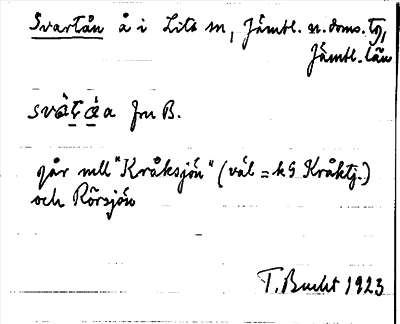 Svartån å i Lits sn, Jämtl. n. doms. tg,
Jämtl. län
från B.
går mll "Kråksjön" (väl = kG Kråktj.)
och Rörsjön
T. Bucht 1923